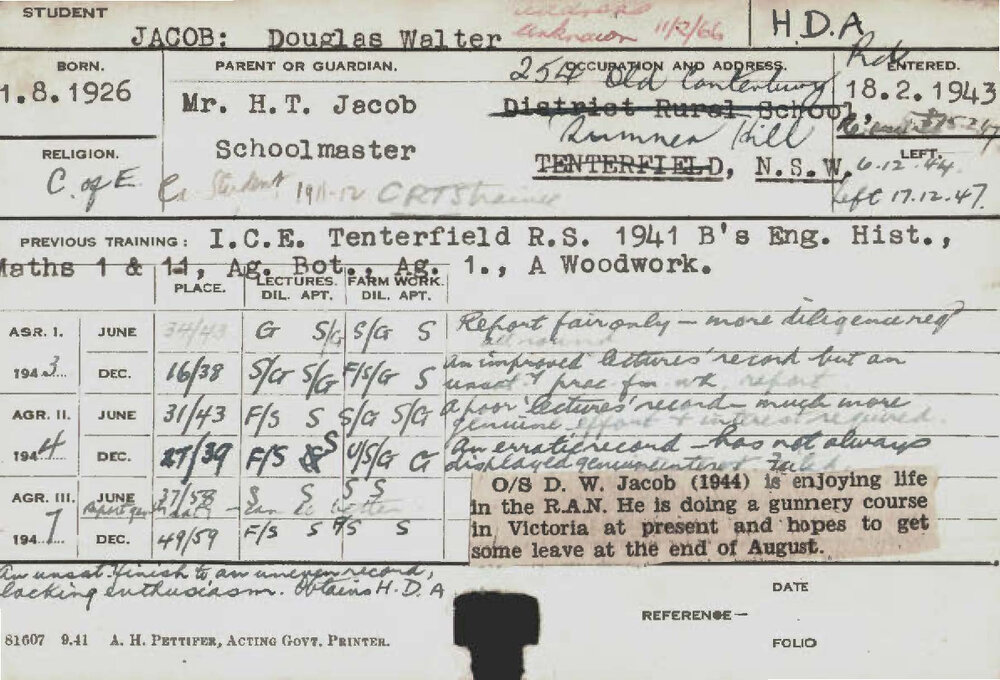 STUDENT
JACOB: Douglas Walter
address unknown 11/2/66
H.D.A
BORN.
1.8.1926
PARENT OR GUARDIAN.
Mr. H.T. Jacob
Schoolmaster
OCCUPATION AND ADDRESS.
254 Old Canterbury Rd
District Rural School,
Summer Hill
TENTERFIELD, N.S.W.
ENTERED.
18.2.1943
LEFT.
6.12.44.
left 17.12.47.
RELIGION.
C. of E.
Student
CRTS trainee
PREVIOUS TRAINING: I.C.E. Tenterfield R.S. 1941 B's Eng. Hist.,
Maths 1 & 11, Ag. Bot., Ag. 1., A Woodwork.
PLACE. LECTURES. FARM WORK.
DIL. APT. DIL. APT.
AGR. I. JUNE 34/43 G S/G S/G S Report fair only — more diligence req
all round
1943 DEC. 16/38 S/G S/G F/S/G S An improved lectures' record but an
unsat. prac fm wk. report
AGR. II. JUNE 31/43 F/S S S/G S/G A poor lectures' record — much more
genuine effort + interest required.
1944 DEC. 27/39 F/S S U/S/G G An erratic record — has not always
displayed genuine interest. Failed
AGR. III. JUNE 37/58 S S S S
can do better
1947 DEC. 49/59 F/S S F/S S
O/S D. W. Jacob (1944) is enjoying life
in the R.A.N. He is doing a gunnery course
in Victoria at present and hopes to get
some leave at the end of August.
An unsat. finish to an uneven record,
lacking enthusiasm. Obtains H.D.A
DATE
REFERENCE—
FOLIO
81607 9.41 A. H. PETTIFER, ACTING GOVT. PRINTER.